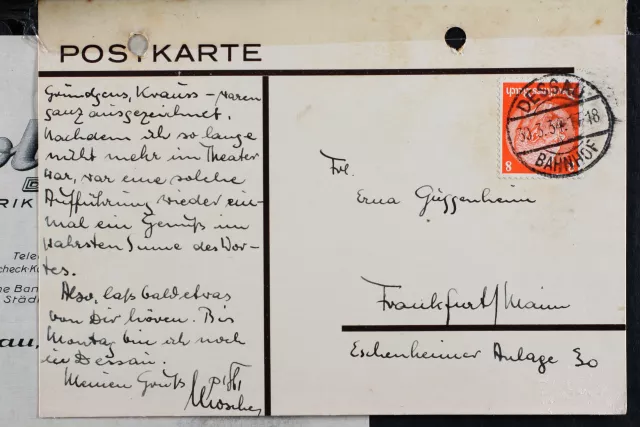 POSTKARTE
Gründgens, Krauss – waren
ganz ausgezeichnet.
Nachdem ich so lange
nicht mehr im Theater
war, war eine solche
Aufführung wieder ein-
mal ein Genuß im
wahrsten Sinne des Wor-
tes.
Also, laß bald etwas
von Dir hören. Bis
Montag bin ich noch
in Dessau.
Meinen Gruß
DESSAU
BAHNHOF
8
Frl.
Erna Guggenheim
Frankfurt/Main
Eschenheimer Anlage 30
RIK
Tele
check-K
e Ban
Städ
au,